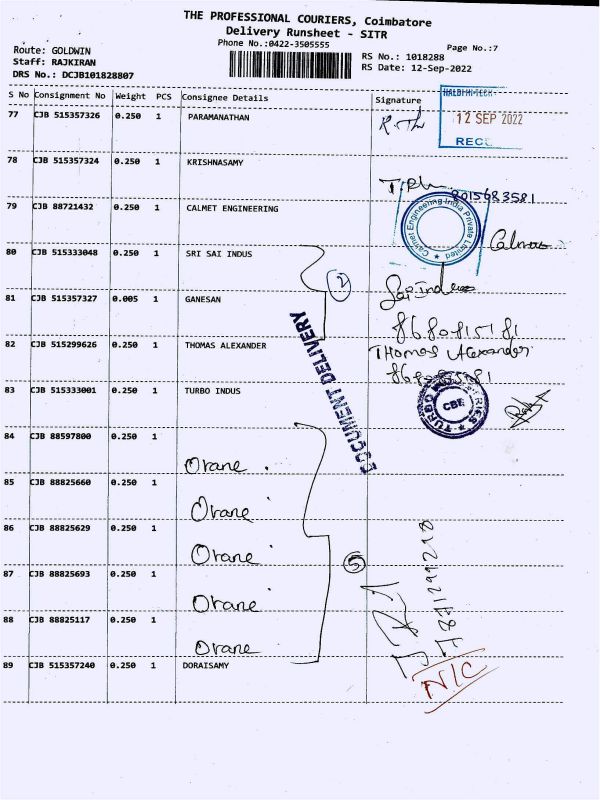 THE PROFESSIONAL COURIERS, Coimbatore
Delivery Runsheet - SITR
Phone No.:0422-3505555
Page No.:7
Route: GOLDWIN
Staff: RAJKIRAN
DRS No.: DCJB101828807
RS No.: 1018288
RS Date: 12-Sep-2022
S No Consignment No Weight PCS Consignee Details Signature
12 SEP 2022
77 CJB 515357326 0.250 1 PARAMANATHAN
78 CJB 515357324 0.250 1 KRISHNASAMY
9015683581
79 CJB 88721432 0.250 1 CALMET ENGINEERING
Calmet Engineering India Private Limited
80 CJB 515333048 0.250 1 SRI SAI INDUS
2
81 CJB 515357327 0.005 1 GANESAN
8680815181
82 CJB 515299626 0.250 1 THOMAS ALEXANDER Thomas Alexander
DOCUMENT DELIVERY
83 CJB 515333001 0.250 1 TURBO INDUS
TURBO INDUSTRIES
CBE
84 CJB 88597800 0.250 1
Orane
85 CJB 88825660 0.250 1
Orane
86 CJB 88825629 0.250 1
Orane
5
87 CJB 88825693 0.250 1
Orane
88 CJB 88825117 0.250 1
Orane
89 CJB 515357240 0.250 1 DORAISAMY
N/C